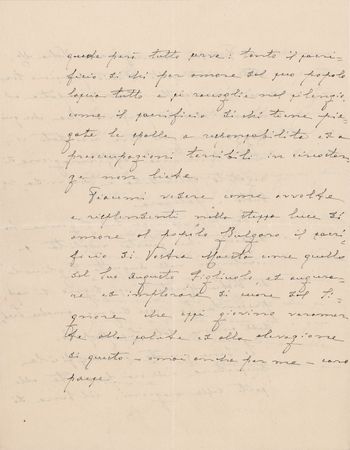 quale però tutto serve: tanto il sacri-
ficio di chi per amore del suo popolo
lascia tutto e si raccoglie nel silenzio,
come il sacrificio di chi tiene pie-
gate le spalle a responsabilità ed a
preoccupazioni terribili in circostan-
za non liete.
Piacemi vedere come avvolte
e risplendenti nella stessa luce di
amore al popolo Bulgaro il sacri-
ficio di Vostra Maestà come quello
del Suo Augusto Figliuolo, ed augura-
re ed implorare di cuore dal Si-
gnore che essi giovino veramen-
te alla salute ed alla elevazione
di questo – omai anche per me – caro
paese.